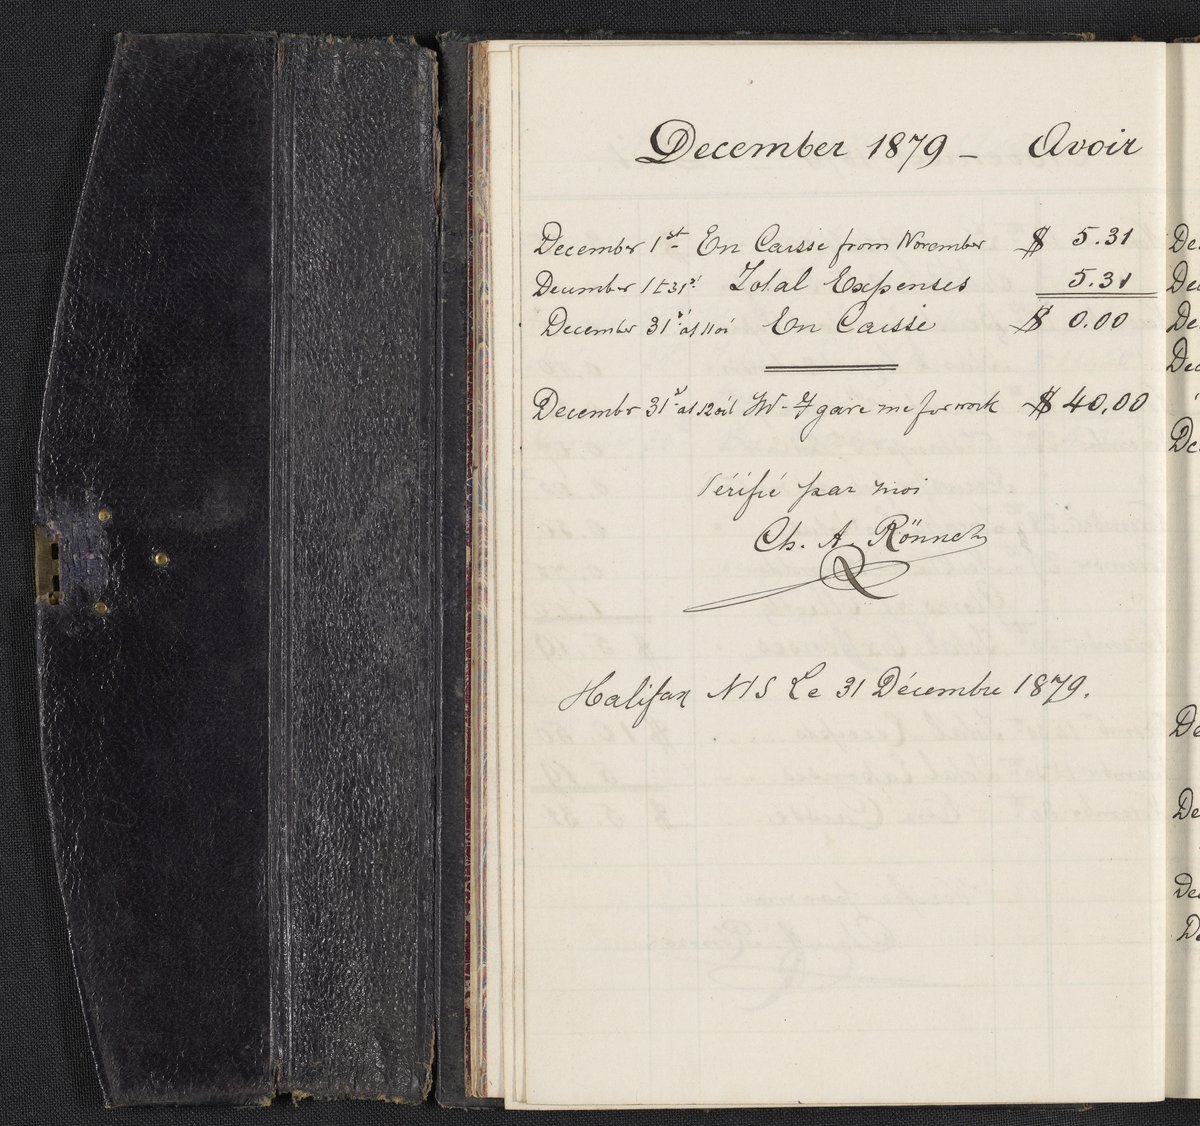 December 1879 - Avoir
December 1st En Caisse from November $ 5.31
December 1 t 31st Total Expenses 5.31
December 31st at 11oi En Caisse $ 0.00
Decembr 31st at 12oil gave me for work $ 40.00
Vérifié par moi
Ch. A. Rönne
Halifax N S Le 31 Décembre 1879.